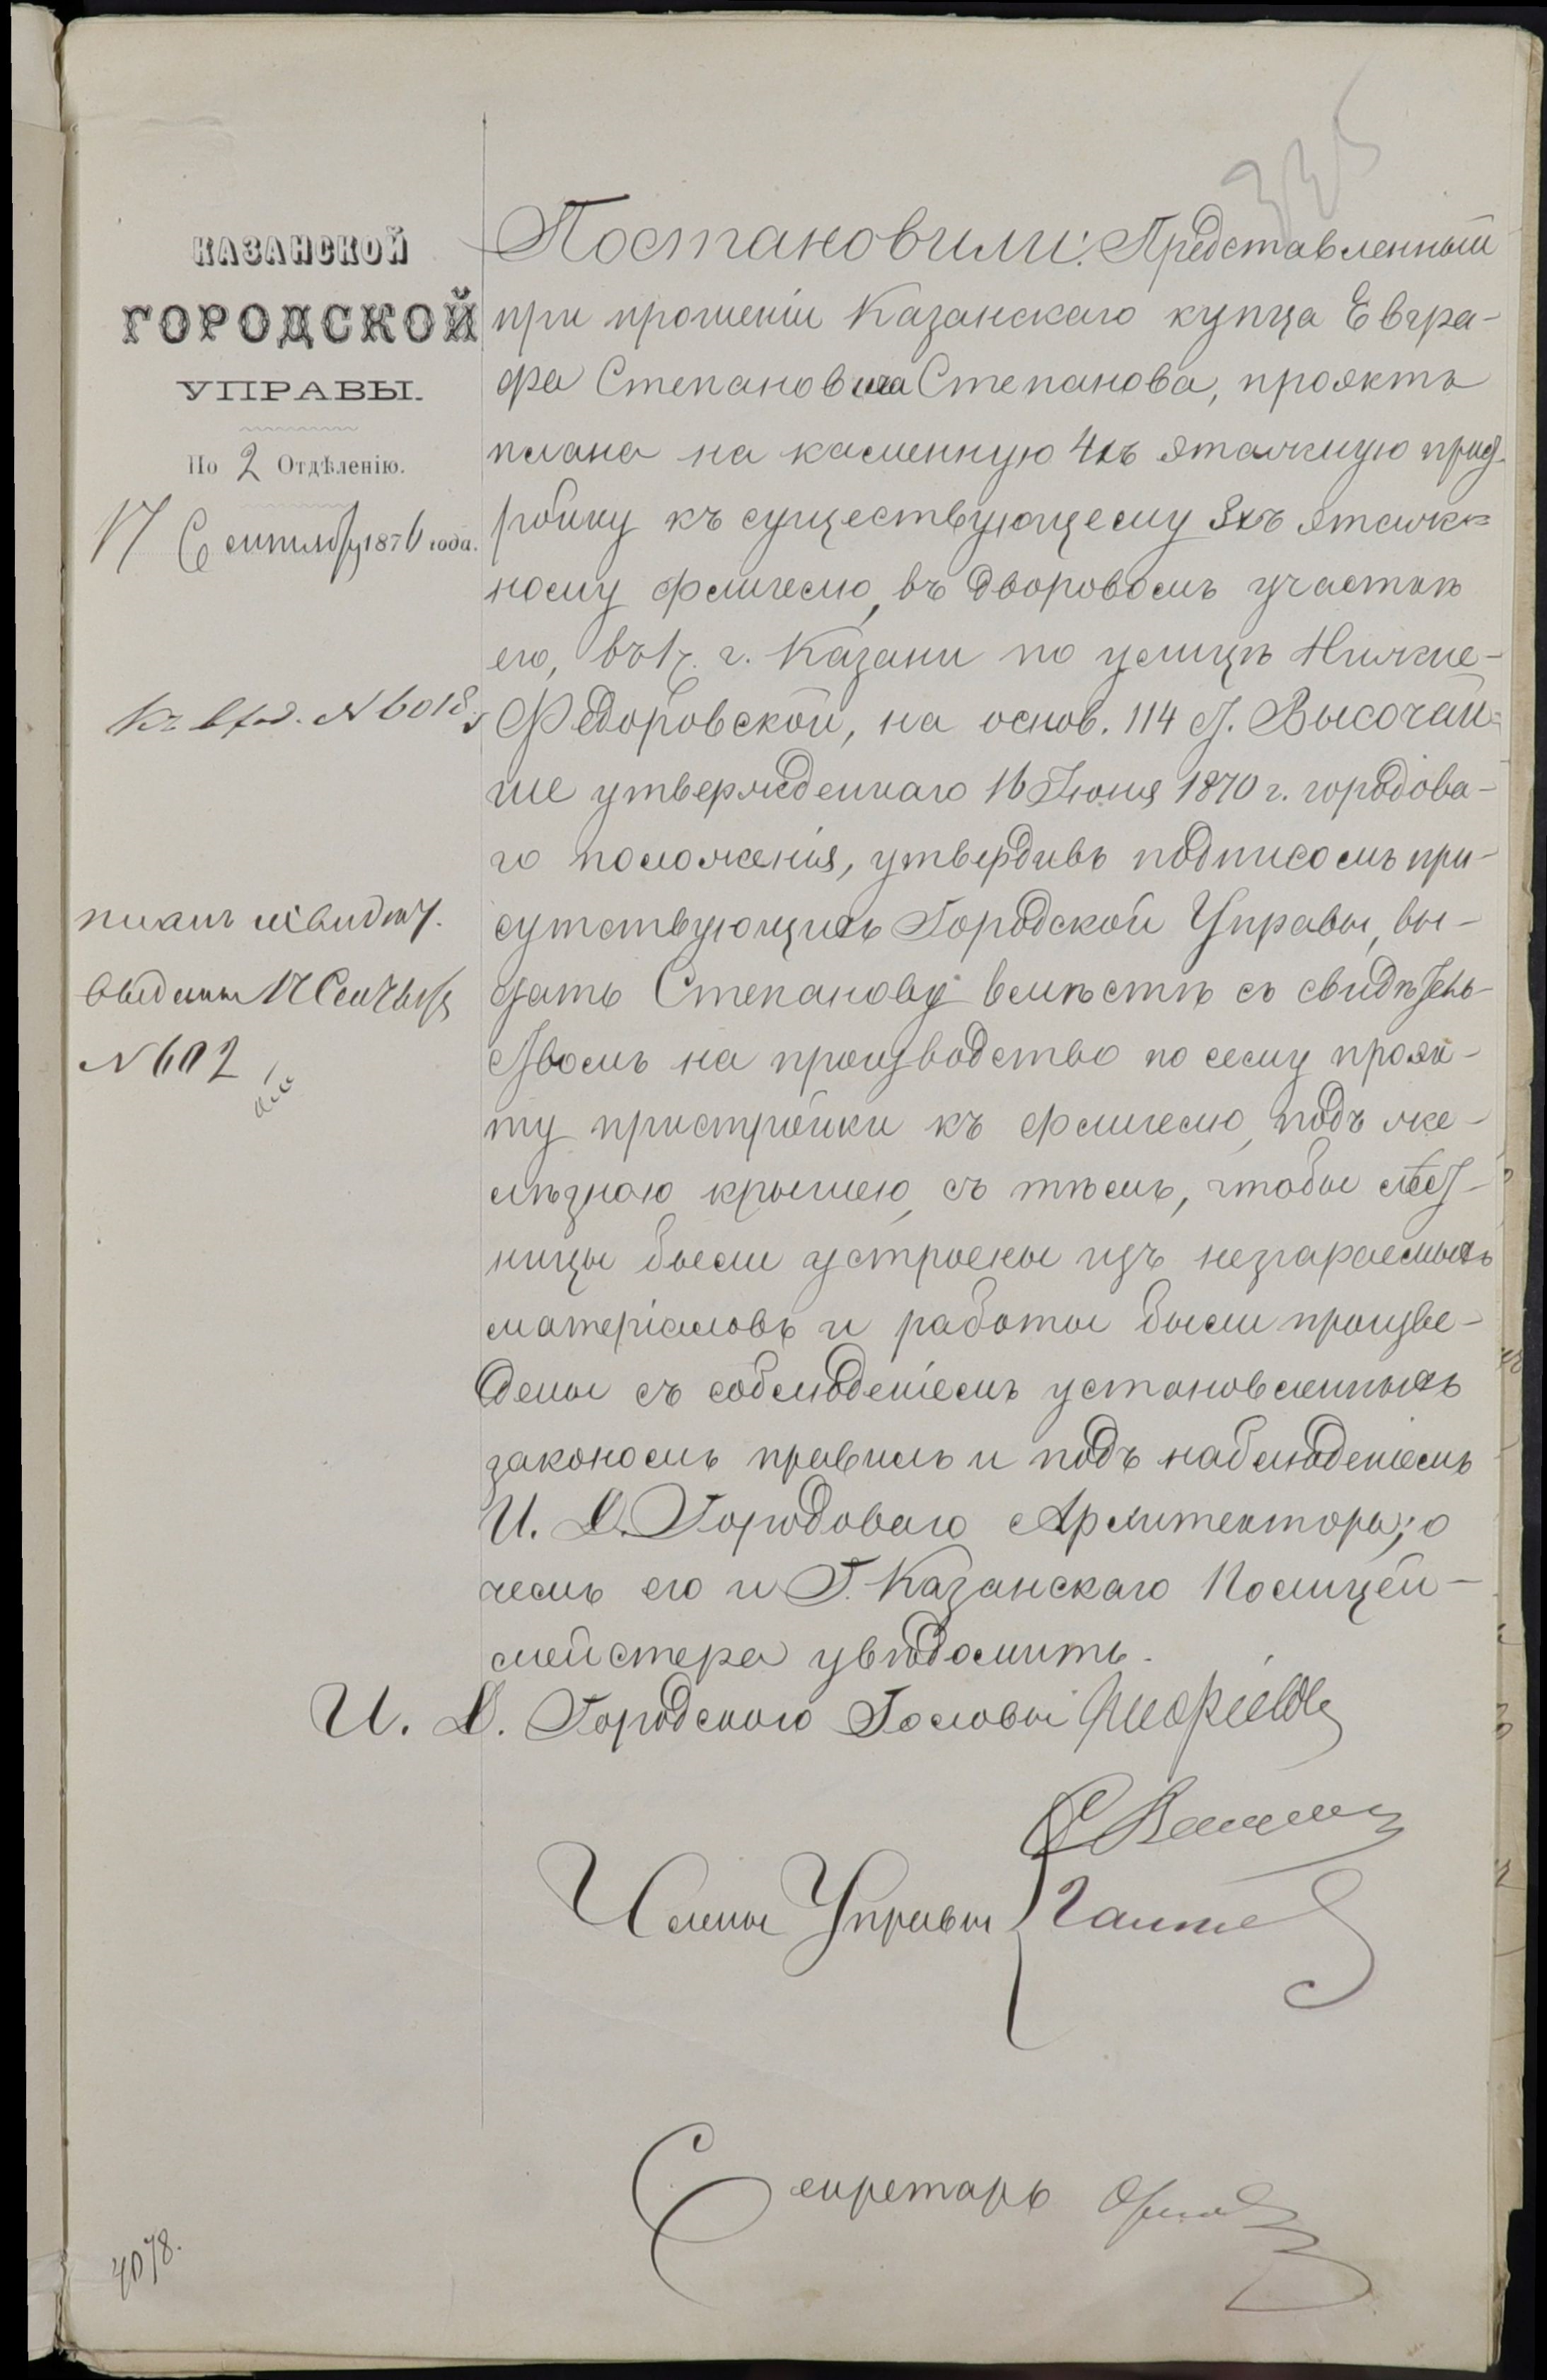 335
КАЗАНСКОЙ
ГОРОДСКОЙ
УПРАВЫ.
По 2 Отдѣленію.
17 Сентября 1876 года.
Къ вход. № 6018
планъ и свидѣт.
выданы 17 Сентября
№ 602
Постановили: Представленный
при прошеніи Казанскаго купца Евгра-
фа Степановича Степанова, проэктъ
плана на каменную 4хъ этажную прист-
ройку къ существующему 3хъ этаж-
ному флигелю, въ дворовомъ участкѣ
его, въ 1 ч. г. Казани по улицѣ Нижне-
Федоровской, на основ. 114 ст. Высочай-
ше утвержденнаго 16 Іюня 1870 г. городова-
го положенія, утвердивъ подписомъ при-
сутствующихъ Городской Управы, вы-
дать Степанову вмѣстѣ съ свидѣтель-
ствомъ на производство по сему проэк-
ту пристройки къ флигелю, подъ же-
лѣзною крышею, съ тѣмъ, чтобы лѣст-
ницы были устроены изъ незгараемыхъ
матеріаловъ и работы были произве-
дены съ соблюденіемъ установленныхъ
закономъ правилъ и подъ наблюденіемъ
И. Д. Городоваго Архитектора; о
чемъ его и Г. Казанскаго Полицей-
мейстера увѣдомить.
И. Д. Городскаго Головы
Члены Управы
Секретарь
4078.